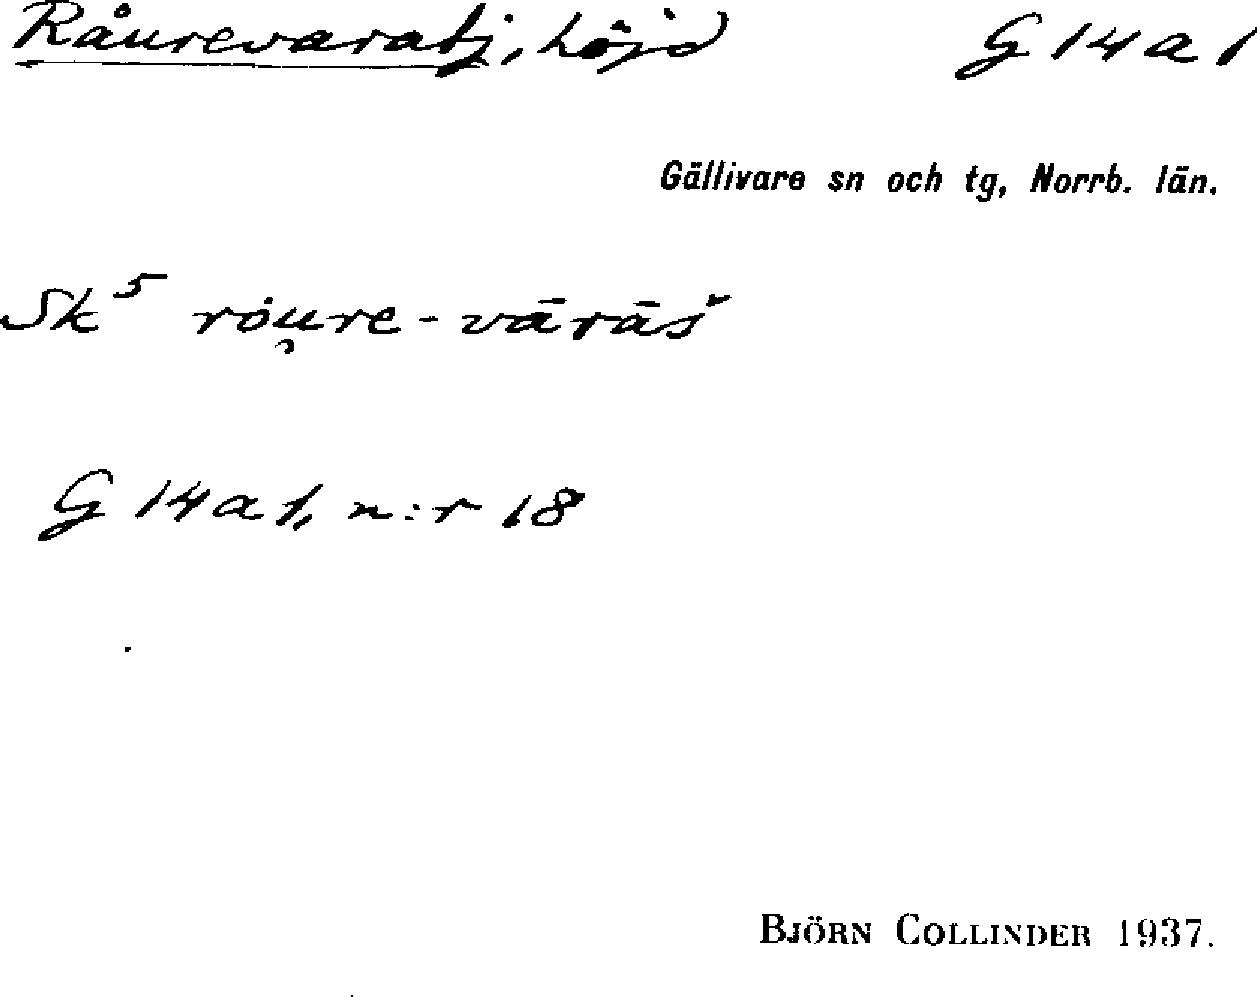 Råurevaratj, höjd G 14 a 1
Gällivare sn och tg, Norrb. län.
Sk⁵ rȯu̯re-vārāš
G 14 a 1, n:r 18
BJÖRN COLLINDER 1937.